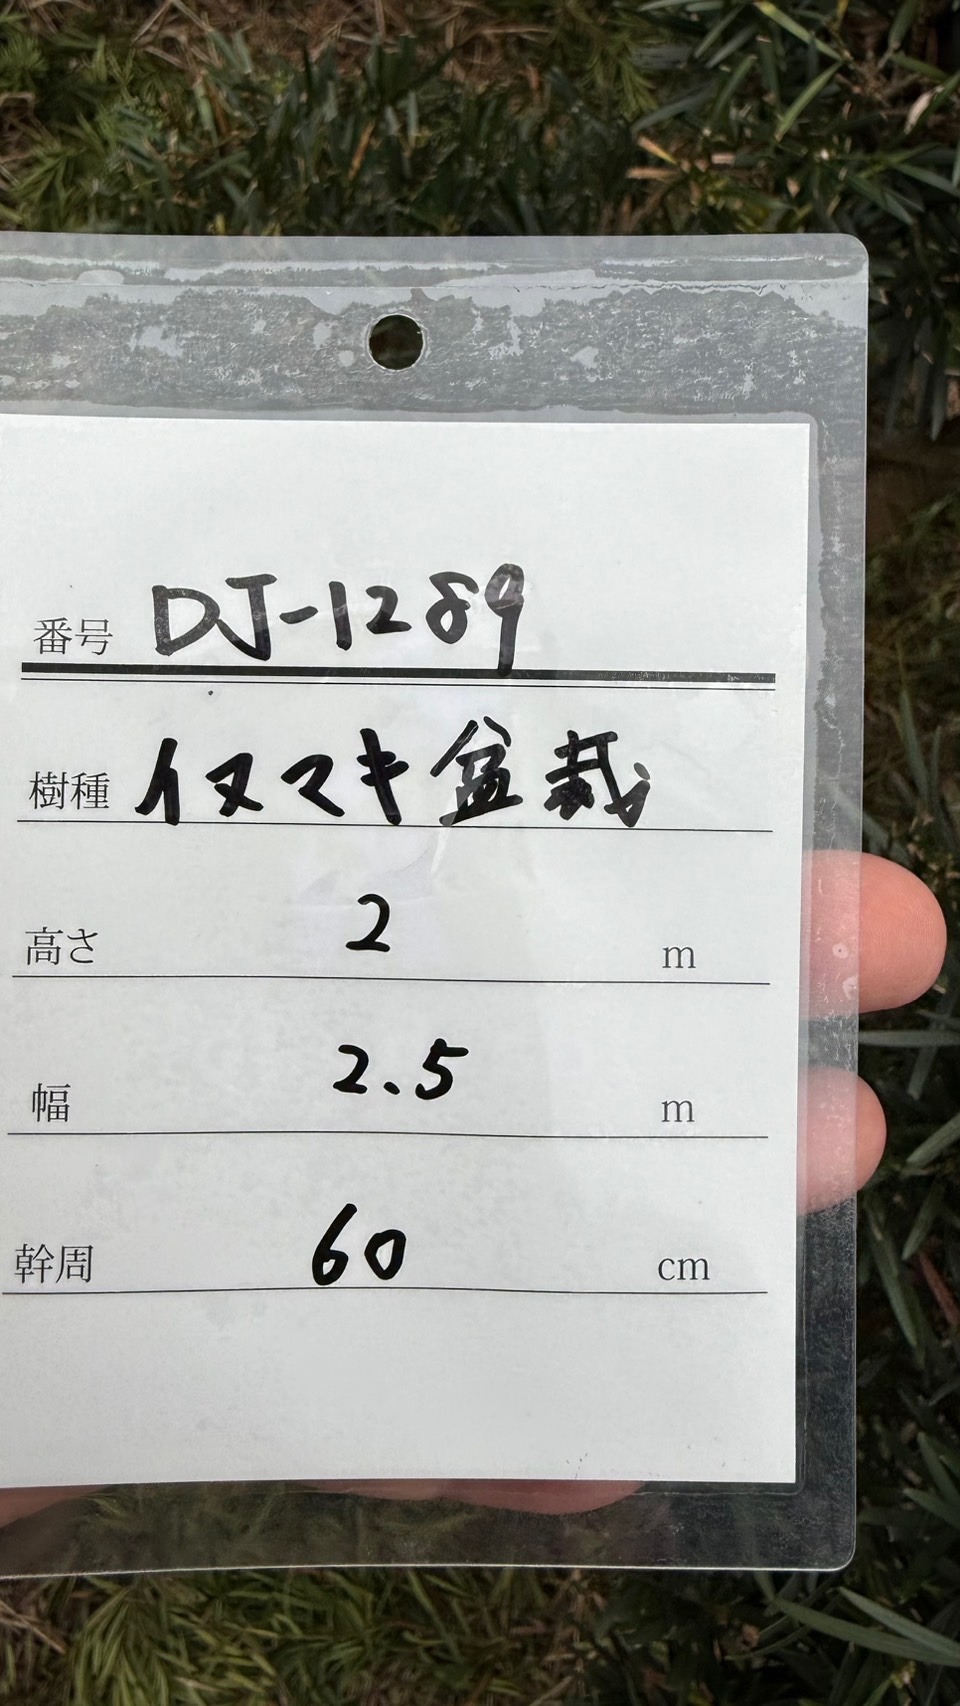 番号 DJ-1289
樹種 イヌマキ盆栽
高さ 2 m
幅 2.5 m
幹周 60 cm